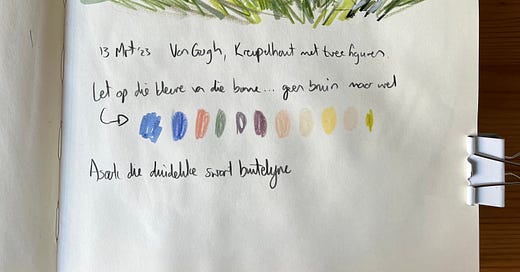 13 Mrt '23 Van Gogh, Kreupelhout met twee figuren.
Let op die kleure van die bome... geen bruin maar wel
die duidelike swart buitelyne